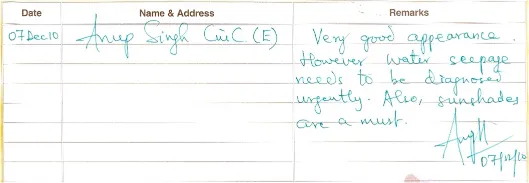 Date Name & Address Remarks
07Dec10 Anup Singh CinC (E) Very good appearance.
However water seepage
needs to be diagnosed
urgently. Also, sunshades
are a must.
07/12/10